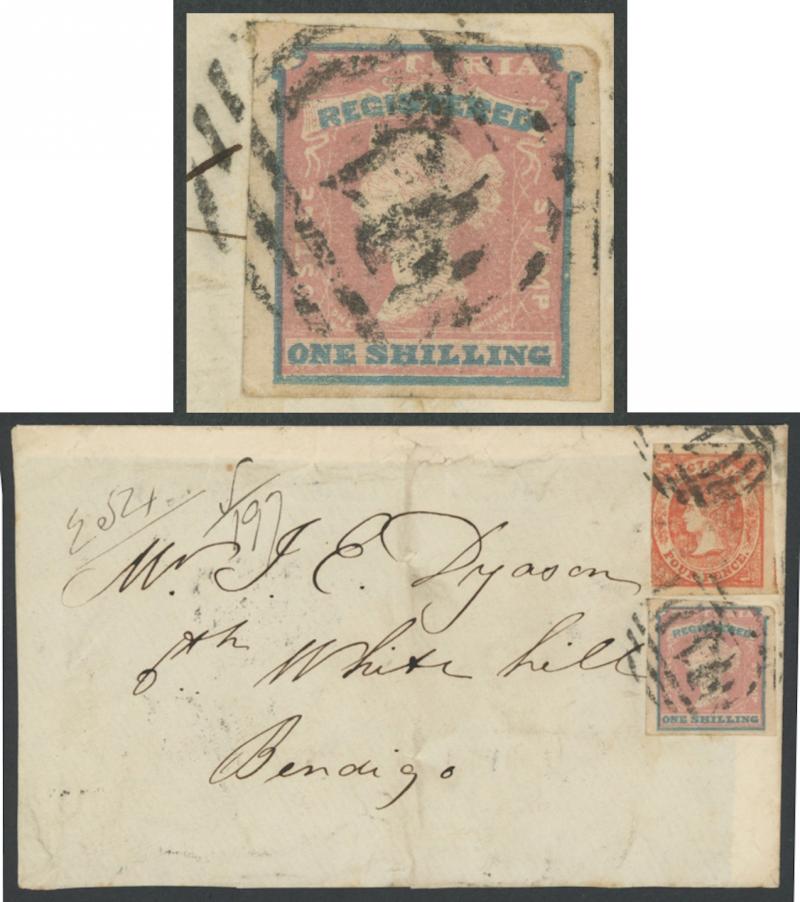 VICTORIA
REGISTERED
POSTAGE STAMP
ONE SHILLING
Mr. J. E. Dyason
6th White hill
Bendigo
VICTORIA
FOUR PENCE.
REGISTERED
ONE SHILLING